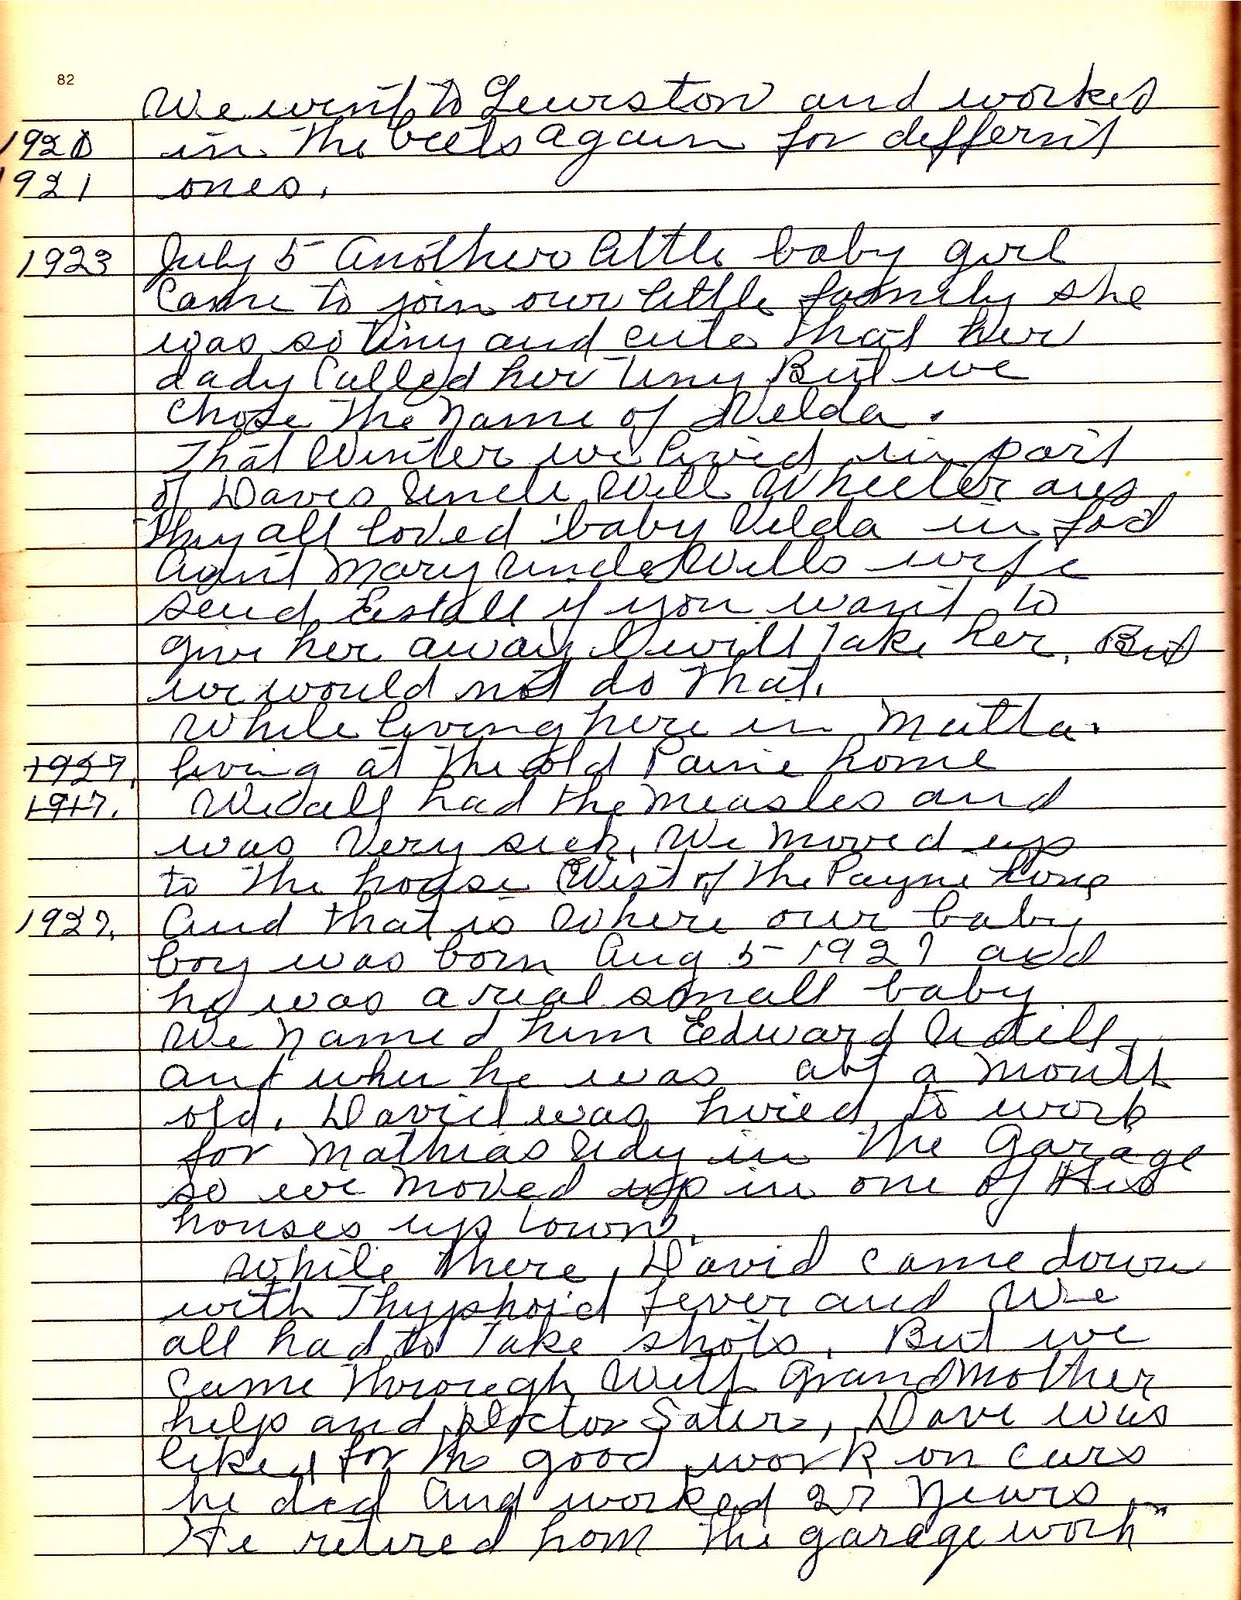 82
We went to Lewiston and worked
1920 in the beets again for differnt
1921 ones.
1923 July 5 Another little baby girl
Came to join our little family she
was so tiny and cute that her
dady Called her Tiny But we
chose the Name of Velda.
That Winter we lived in part
of Daves Uncle Will Wheeler
They all loved baby Velda in
Aunt Mary Uncle Wills wife
Estell if you want to
give her away I will take her. But
we would not do that.
While living here in
1927. living at the old Paine home
1917. We all had the Measles and
was Very sick, We moved up
to the house West of the Payne
1927. And that is Where our baby
boy was born Aug 5-1927 and
he was a real small baby
We Named him Edward
and when he was abt a month
old. David was hired to work
for Mathias Udy in the Garage
so we moved up in one of His
houses up town.
While there, David came down
with Thyphoid fever and We
all had to Take shots. But we
came through With GrandMother
help and Doctor, Dave was
liked for the good work on cars
he did And worked 27 Years
He retired from the garage work